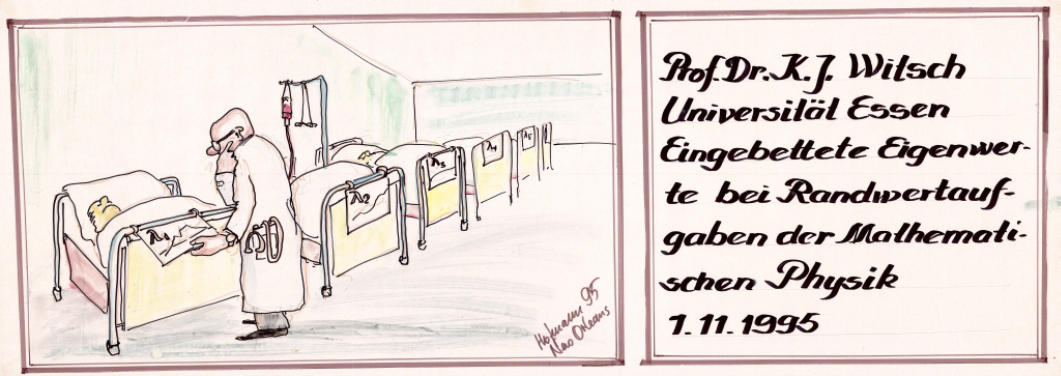 λ1
λ2
λ3
λ4
λ5
Hofmann 95
New Orleans
Prof. Dr. K. J. Witsch
Universität Essen
Eingebettete Eigenwer-
te bei Randwertauf-
gaben der Mathemati-
schen Physik
1. 11. 1995